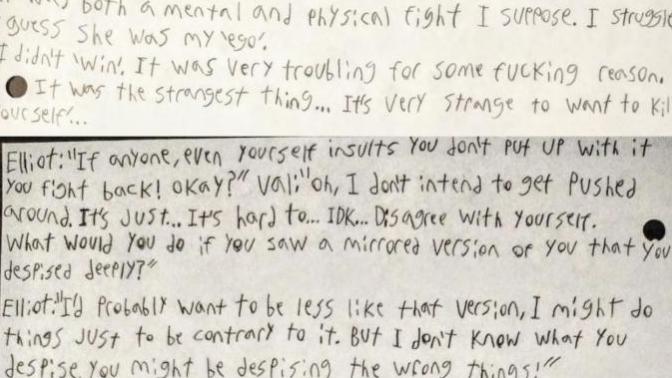 both a mental and physical fight I suppose. I struggle
guess she was my 'ego'.
I didn't 'win'. It was very troubling for some fucking reason.
It was the strangest thing... It's very strange to want to kil
ourself'...
Elliot:"If anyone, even yourself insults you don't put up with it
you fight back! okay?" Val:"oh, I don't intend to get pushed
around. It's just... It's hard to... IDK... Disagree with yourself.
What would you do if you saw a mirrored version of you that you
despised deeply?"
Elliot:"I'd probably want to be less like that version, I might do
things just to be contrary to it. But I don't know what you
despise you might be despising the wrong things!"